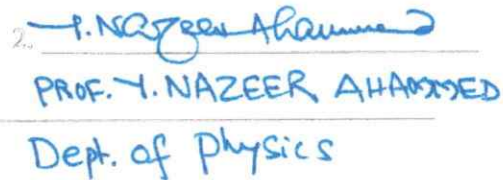 2. Y. Nazeer Ahammed
PROF. Y. NAZEER AHAMMED
Dept. of Physics